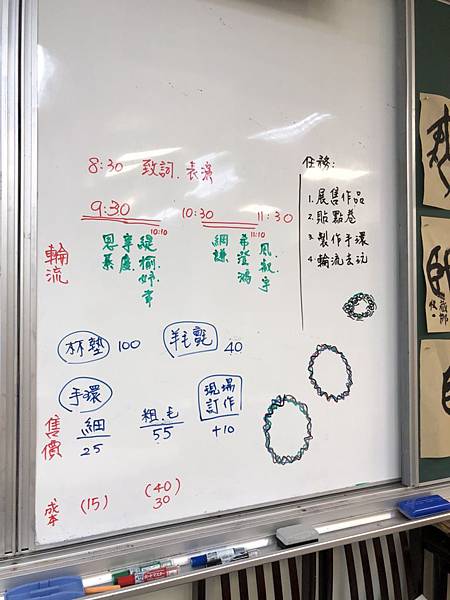 8:30 致詞.表演
9:30 10:30 11:30
10:10 11:10
輪流
恩綦
寧慶
緹愉妤常
綱謙
希澄鴻
凡叡宇
任務:
1. 展售作品
2. 貼點卷
3. 製作手環
4. 輪流去玩
杯墊 100 羊毛氈 40
手環 現場訂作
售價 細 25 粗.毛 55 +10
成本 (15) (40) 30